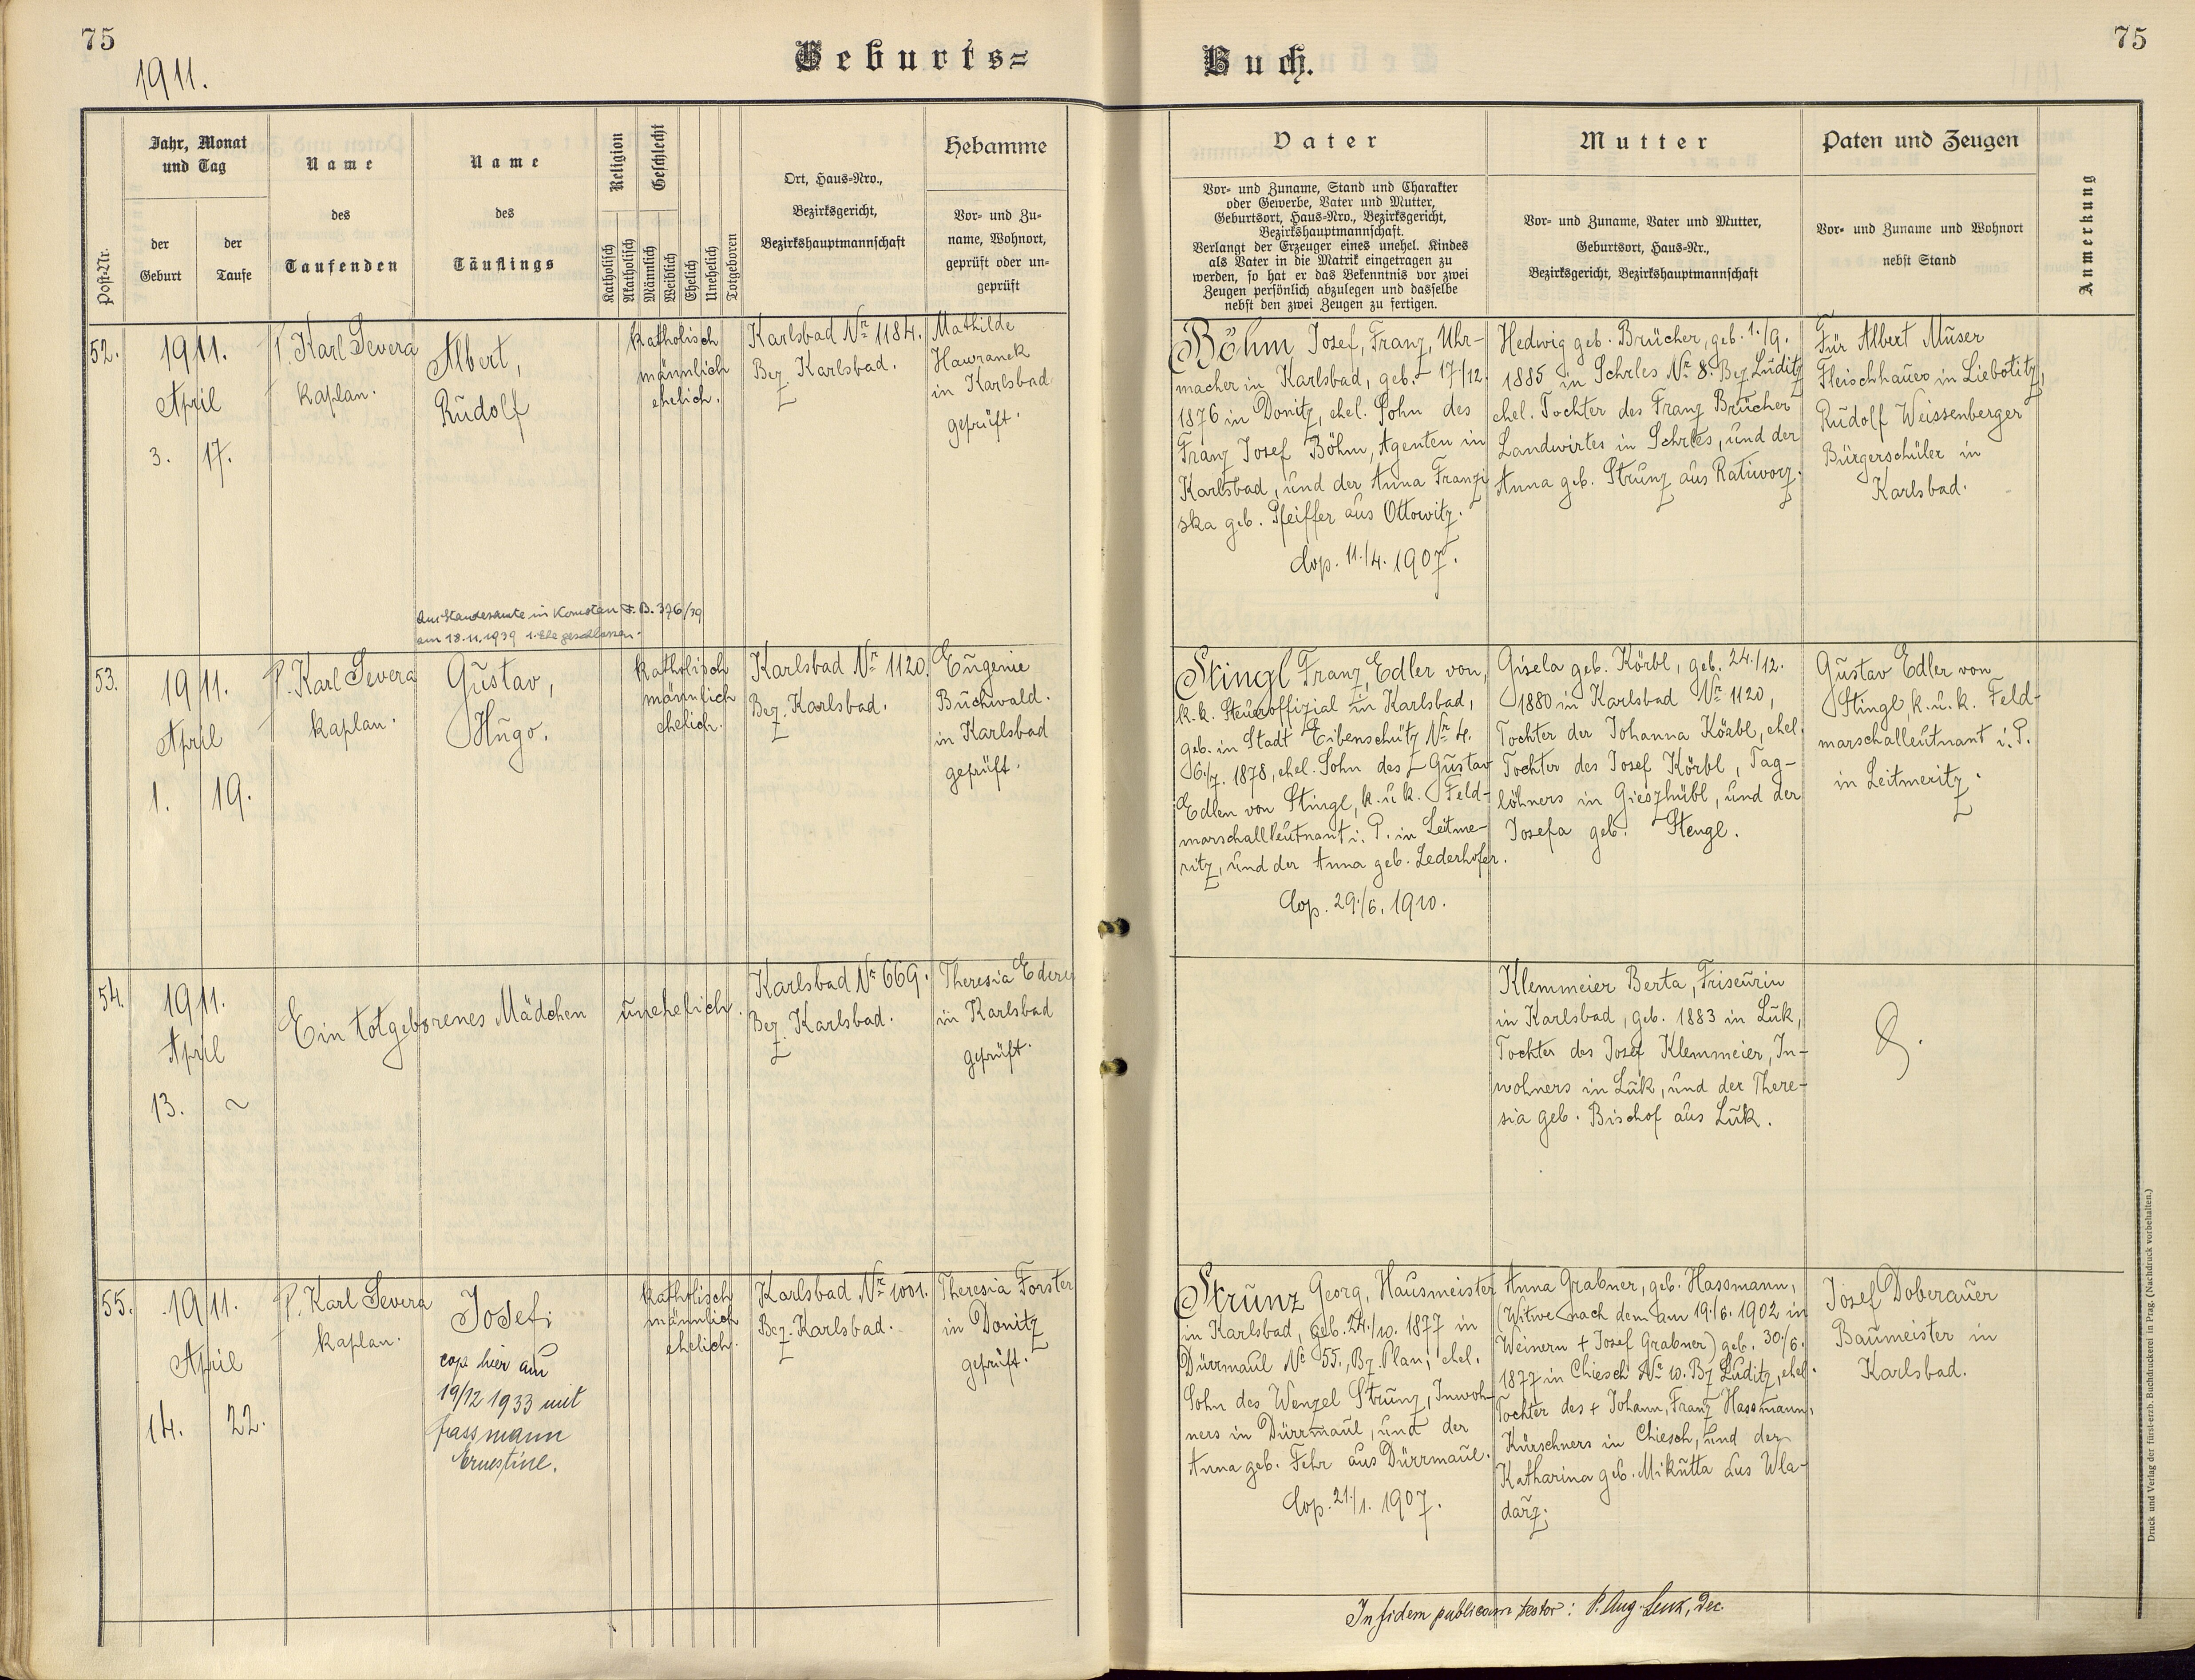 75
1911.
Geburts=
Post-Nr.
Jahr, Monat
und Tag
der
Geburt
der
Taufe
Name
des
Taufenden
Name
des
Täuflings
Religion
Katholisch
Akatholisch
Geschlecht
Männlich
Weiblich
Ehelich
Unehelich
Totgeboren
Ort, Haus-Nro.,
Bezirksgericht,
Bezirkshauptmannschaft
Hebamme
Vor- und Zu-
name, Wohnort,
geprüft oder un-
geprüft
52.
1911.
April
3. 17.
P. Karl Severa
kaplan.
Albert,
Rudolf
katholisch
männlich
ehelich.
Karlsbad Nr. 1184.
Bez. Karlsbad.
Mathilde
Hawranek
in Karlsbad
geprüft.
F. B. 376/39
am 18.11.1939 1. Ehe geschlossen.
53.
1911.
April
1. 19.
P. Karl Severa
kaplan.
Gustav,
Hugo.
katholisch
männlich
ehelich.
Karlsbad Nr. 1120.
Bez. Karlsbad.
Eugenie
Buchwald.
in Karlsbad
geprüft.
54.
1911.
April
13. ~
Ein totgeborenes Mädchen
unehelich.
Karlsbad Nr. 669.
Bez. Karlsbad.
Theresia Ederer
in Karlsbad
geprüft.
55.
1911.
April
14. 22.
P. Karl Severa
kaplan.
Josef;
cop. hier am
19/12 1933 mit
Hassmann
Ernestine.
katholisch
männlich
ehelich.
Karlsbad Nr. 1001.
Bez. Karlsbad.
Theresia Forster
in Donitz
geprüft.
Buch.
75
Vater
Vor- und Zuname, Stand und Charakter
oder Gewerbe, Vater und Mutter,
Geburtsort, Haus-Nro., Bezirksgericht,
Bezirkshauptmannschaft.
Verlangt der Erzeuger eines unehel. Kindes
als Vater in die Matrik eingetragen zu
werden, so hat er das Bekenntnis vor zwei
Zeugen persönlich abzulegen und dasselbe
nebst den zwei Zeugen zu fertigen.
Mutter
Vor- und Zuname, Vater und Mutter,
Geburtsort, Haus-Nr.,
Bezirksgericht, Bezirkshauptmannschaft
Paten und Zeugen
Vor- und Zuname und Wohnort
nebst Stand
Anmerkung
Böhm Josef, Franz, Uhr-
macher in Karlsbad, geb. 17/12.
1876 in Donitz, ehel. Sohn des
Franz Josef Böhm, Agenten in
Karlsbad, und der Anna Franzi
ska geb. Pfeiffer aus Ottowitz.
Cop. 11./4. 1907.
Hedwig geb. Brücher, geb. 1./9.
1885 in Schrles Nr. 8. Bez. Luditz
ehel. Tochter des Franz Brücher
Landwirtes in Schrles, und der
Anna geb. Strunz aus Ratiworz.
Für Albert Muser
Fleischhauer in Liebotitz,
Rudolf Weissenberger
Bürgerschüler in
Karlsbad.
Stingl Franz, Edler von,
k.k. Steueroffizial in Karlsbad,
geb. in Stadt Eibenschütz Nr. 4.
6./7. 1878, ehel. Sohn des Gustav
Edlen von Stingl, k. u. k. Feld-
marschalleutnant i. P. in Leitme-
ritz, und der Anna geb. Lederhofer.
Cop. 29./6. 1910.
Gisela geb. Körbl, geb. 24./12.
1880 in Karlsbad Nr. 1120,
Tochter der Johanna Körbl, ehel.
Tochter des Josef Körbl, Tag-
löhners in Gieszhübl, und der
Josefa geb. Stengl.
Gustav Edler von
Stingl, k. u. k. Feld-
marschalleutnant i. P.
in Leitmeritz.
Klemmeier Berta, Friseurin
in Karlsbad, geb. 1883 in Luk,
Tochter des Josef Klemmeier, In-
wohners in Luk, und der There-
sia geb. Bischof aus Luk.
Strunz Georg, Hausmeister
in Karlsbad, geb. 24./10. 1877 in
Dürrmaul Nr. 55., Bz. Plan, ehel.
Sohn des Wenzel Strunz, Inwoh-
ners in Dürrmaul, und der
Anna geb. Fehr aus Dürrmaul.
Cop. 21./1. 1907.
Anna Grabner, geb. Hassmann,
(Witwe nach dem am 19./6. 1902 in
Weinern + Josef Grabner) geb. 30./6.
1877 in Chiesch Nr. 10. Bz. Luditz, ehel.
Tochter des + Johann, Franz Hassmann,
Kürschners in Chiesch, und der
Katharina geb. Mikutta aus Wla-
darz.
Josef Doberauer
Baumeister in
Karlsbad.
In fidem publicam testor: P. Aug. Lenk, Dec.
Druck und Verlag der fürst-erzb. Buchdruckerei in Prag. (Nachdruck vorbehalten.)